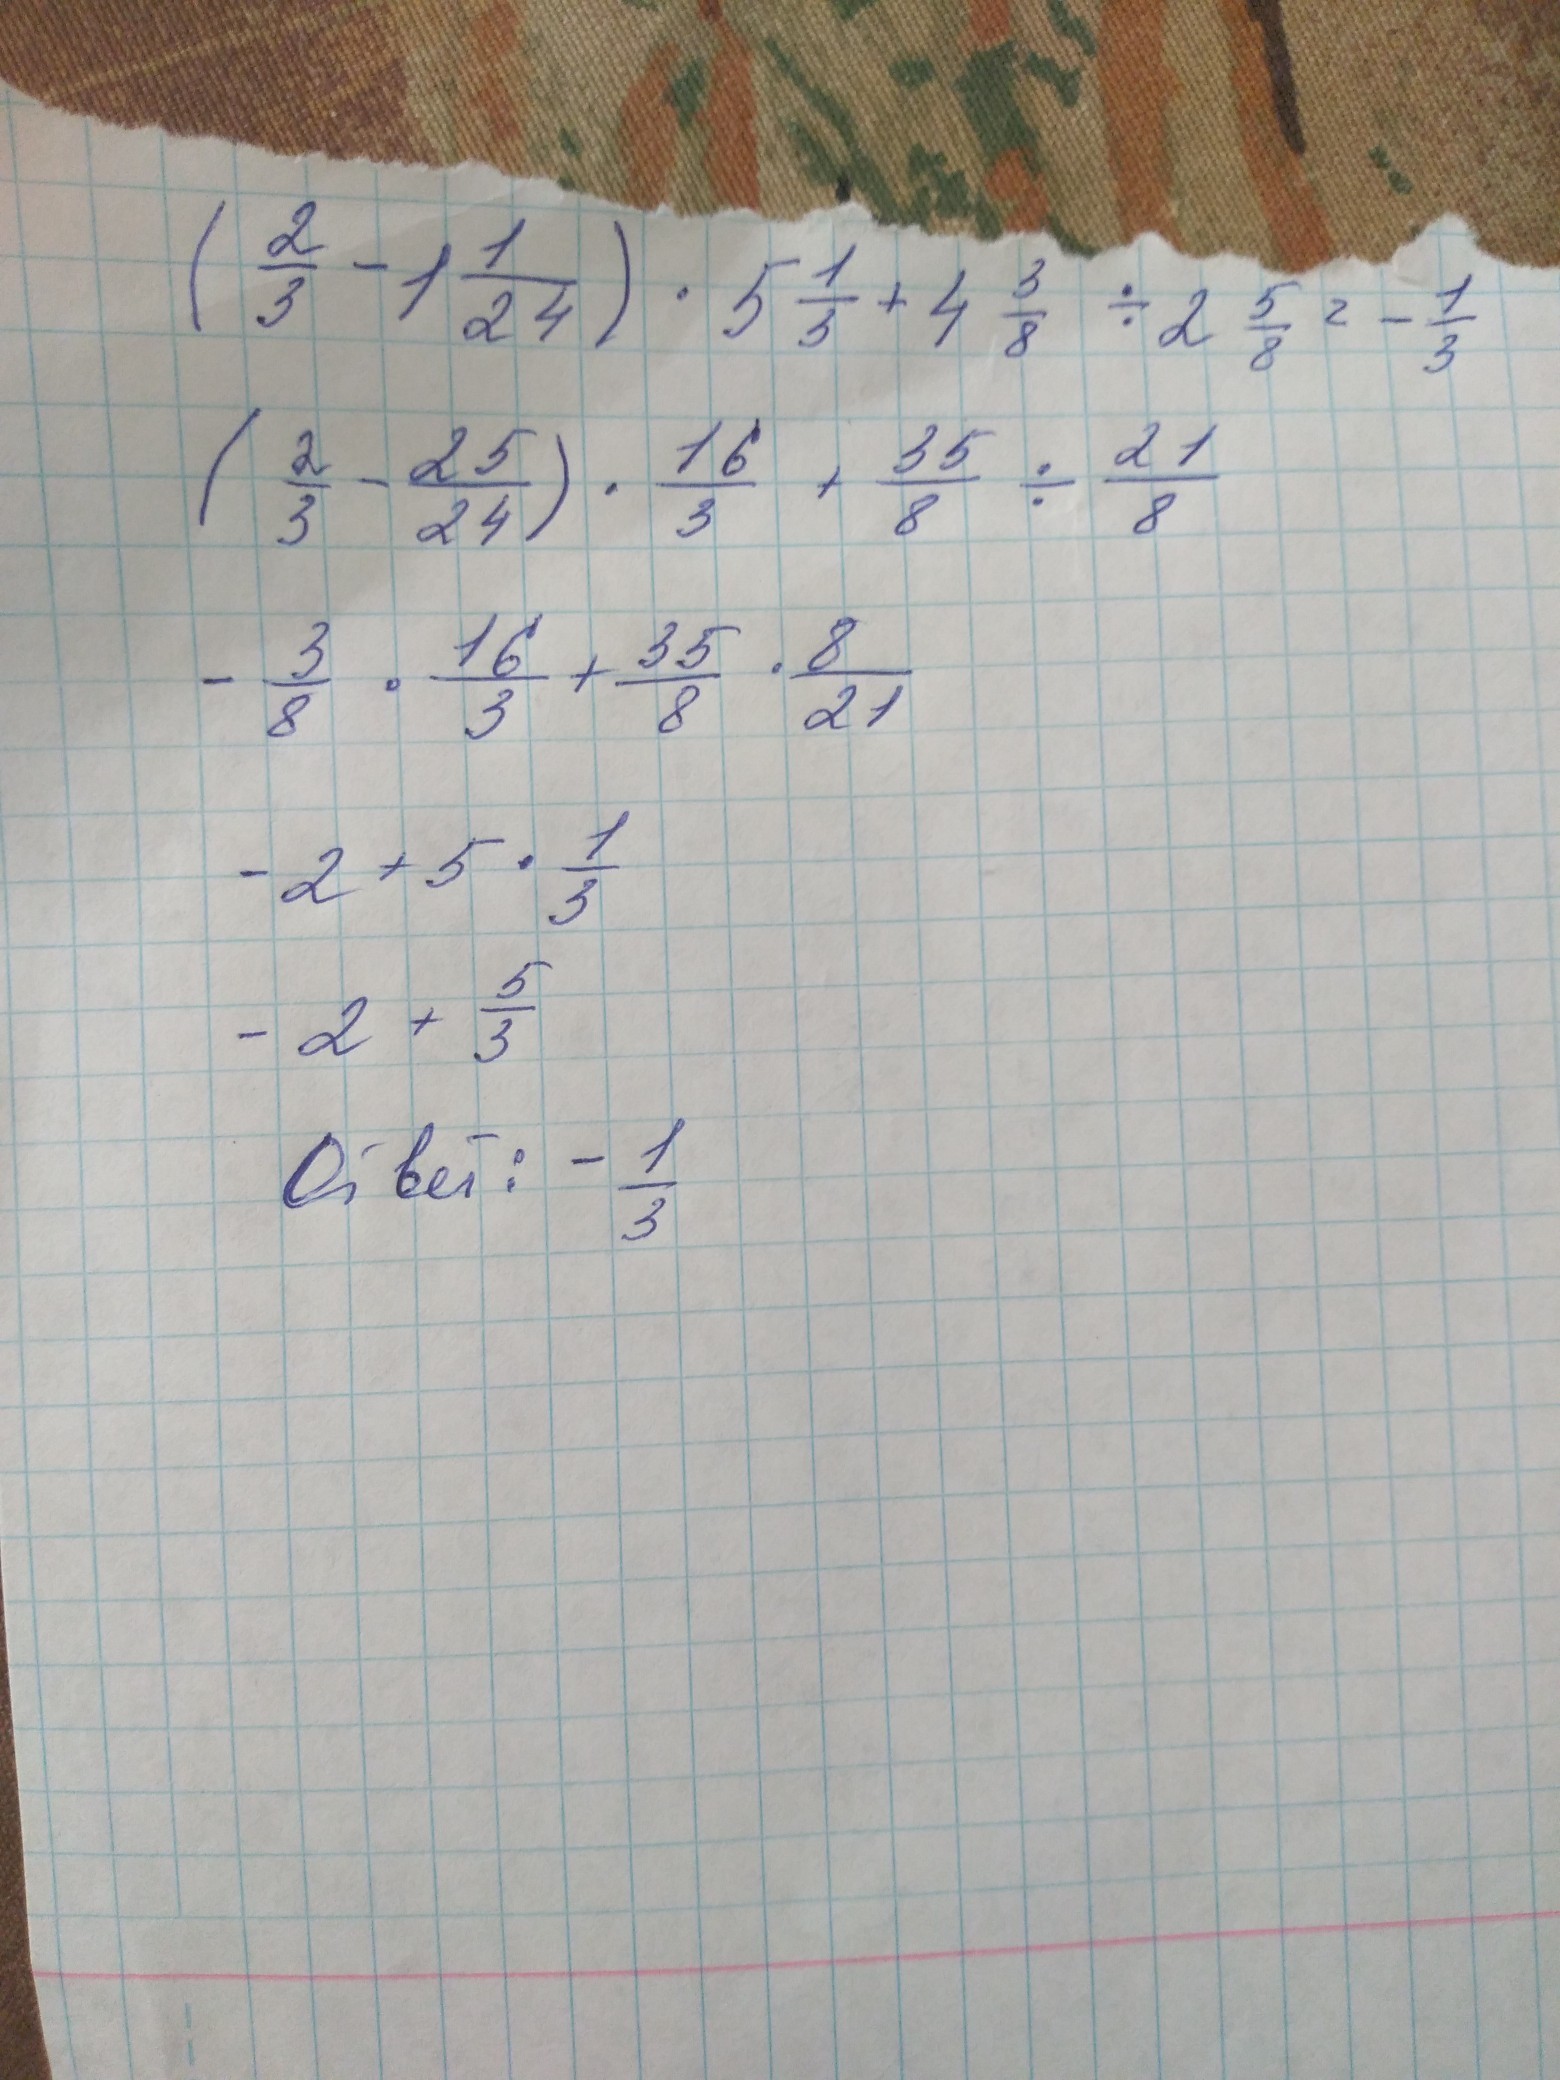 (2/3 - 1 1/24) · 5 1/3 + 4 3/8 ÷ 2 5/8 = - 1/3
(2/3 - 25/24) · 16/3 + 35/8 ÷ 21/8
- 3/8 · 16/3 + 35/8 · 8/21
- 2 + 5 · 1/3
- 2 + 5/3
Ответ: - 1/3